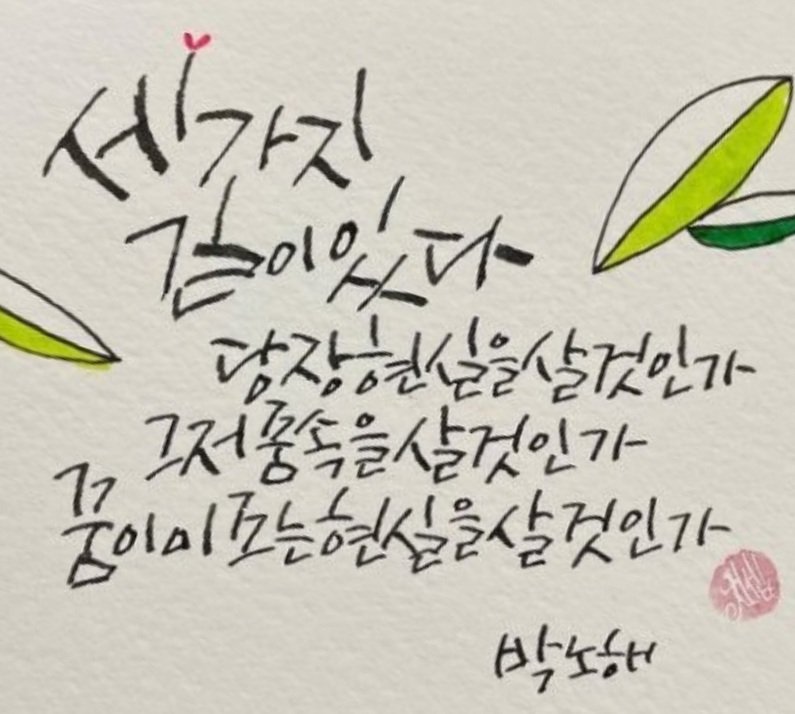 세가지
길이 있다
당장 현실을 살 것인가
그저 살 것인가
꿈이 현실을 살 것인가
박노해